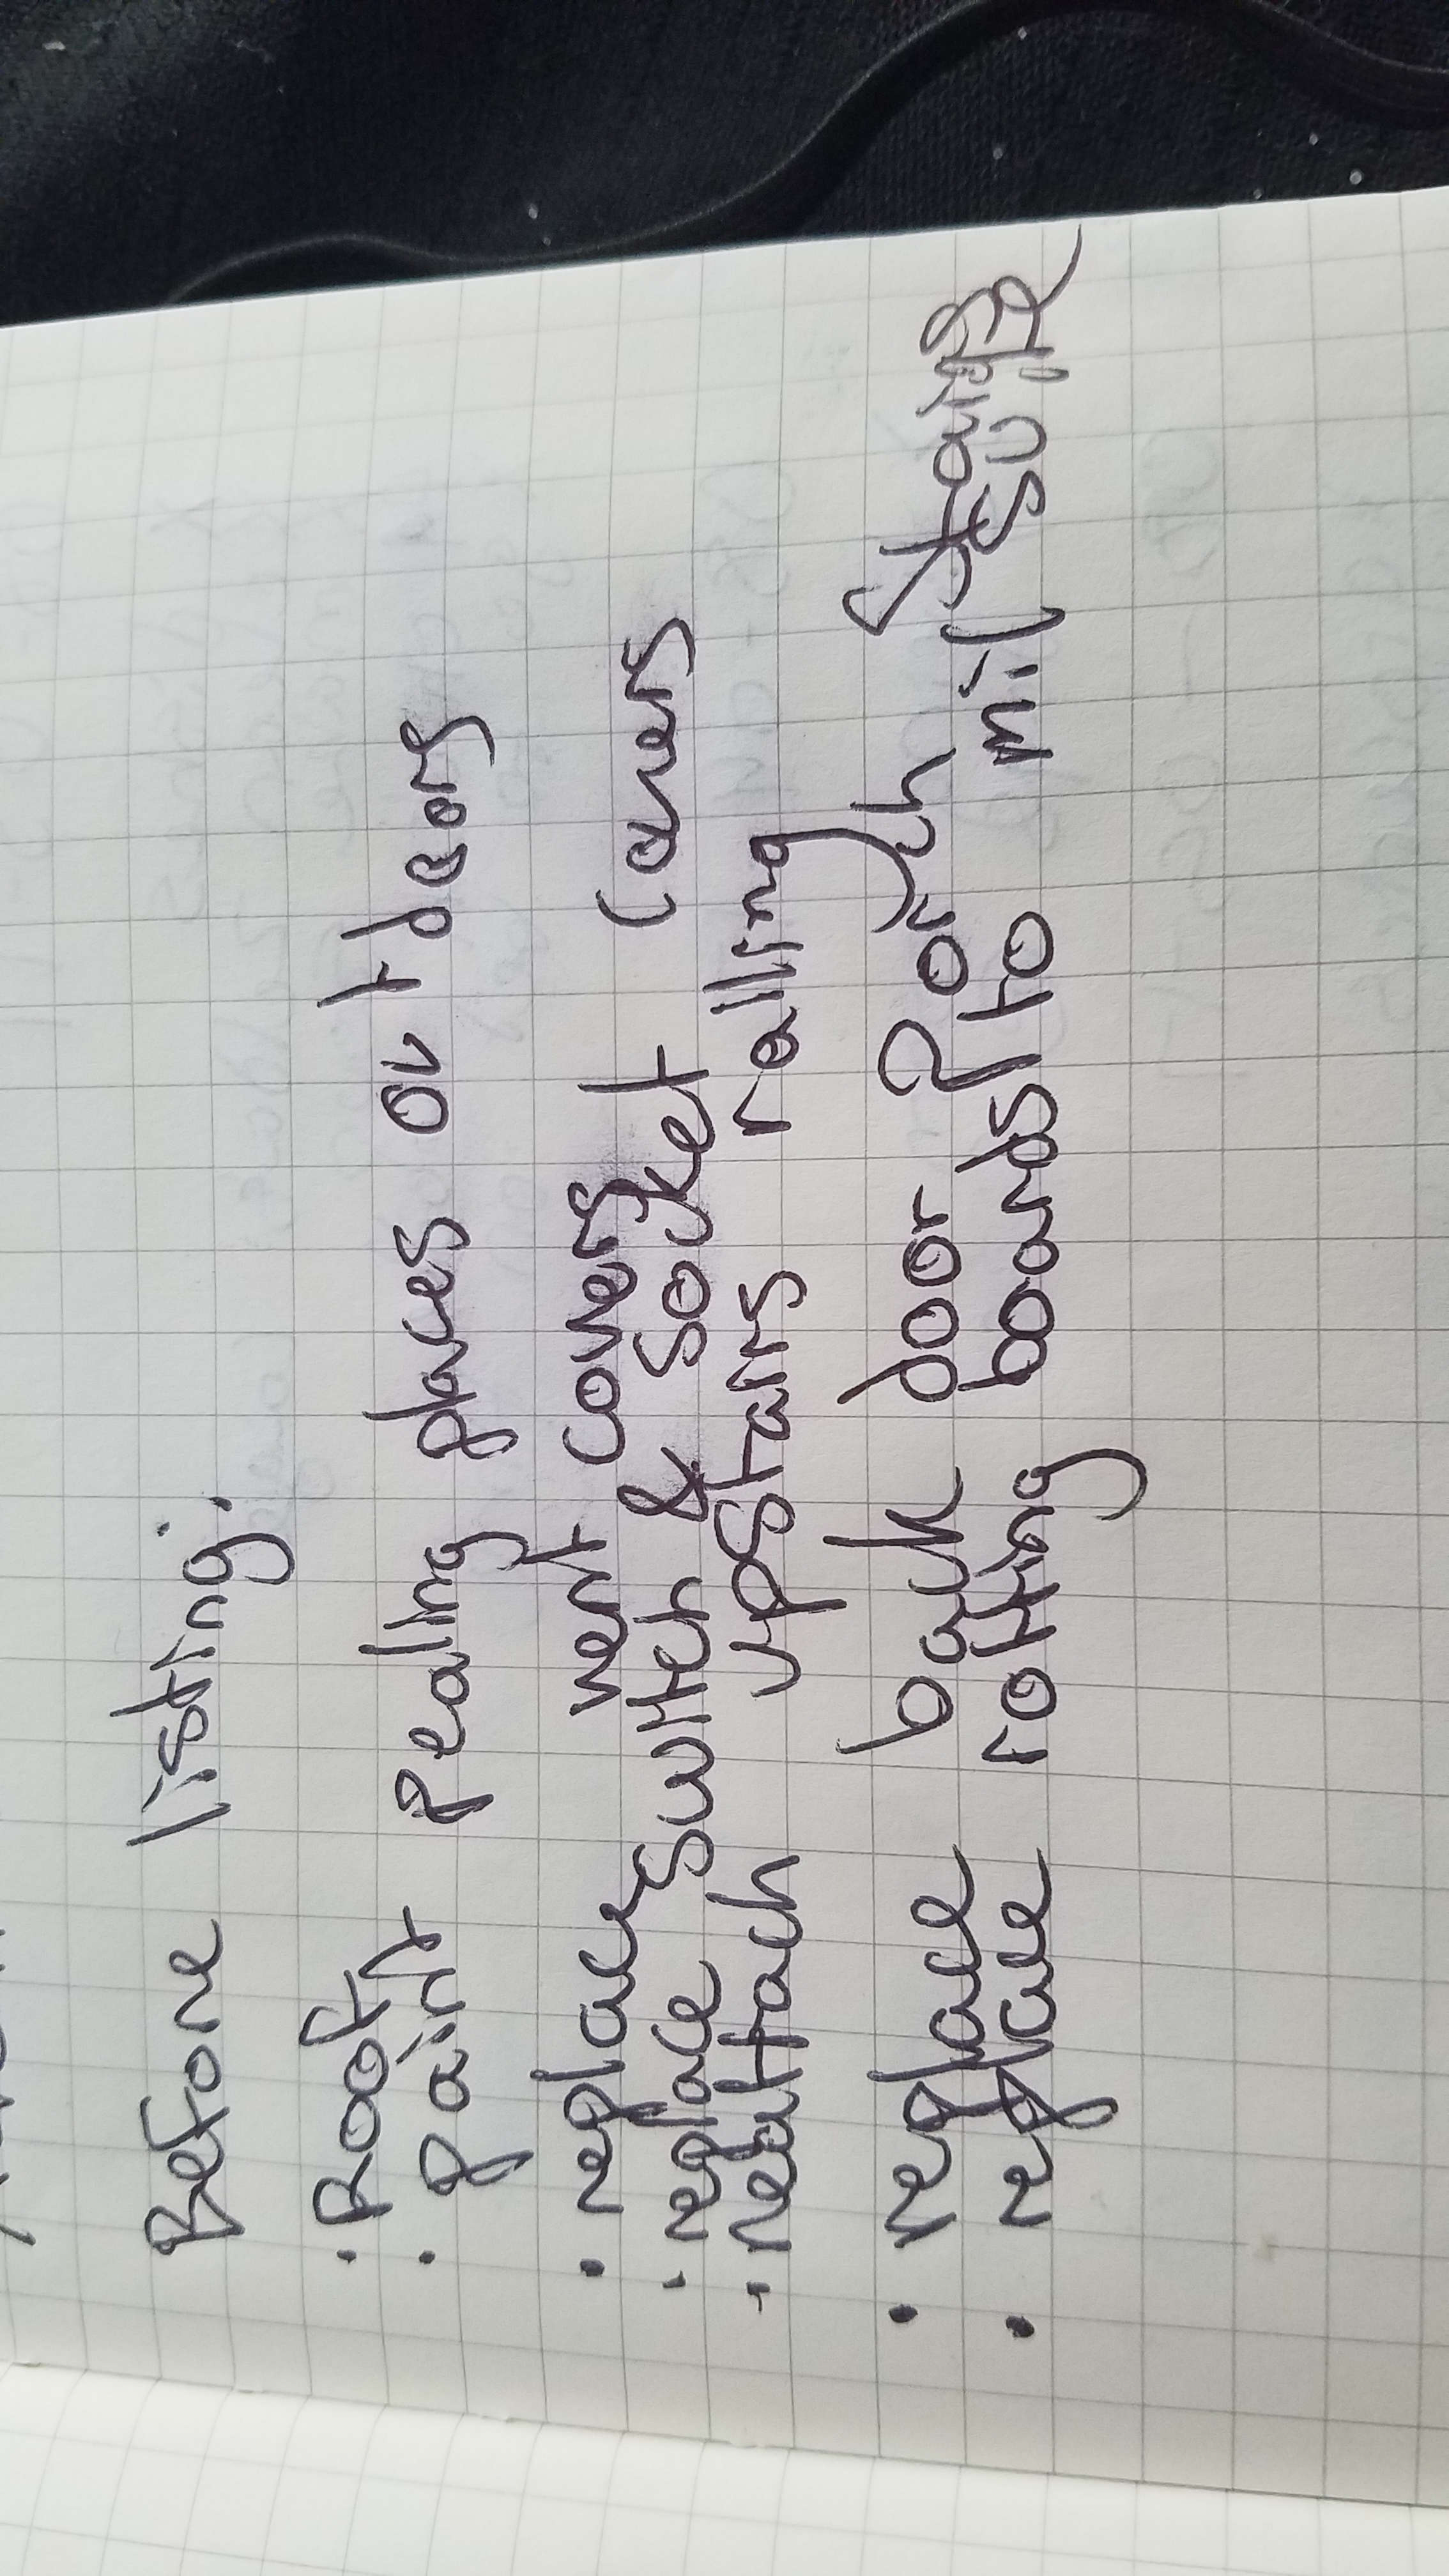 Before listing:
· Roof
· paint pealing places outdoors
· replace vent covers
· replace switch & socket covers
- reattach upstairs railing
· replace back door porch stairs
· replace rotting boards to mil suite